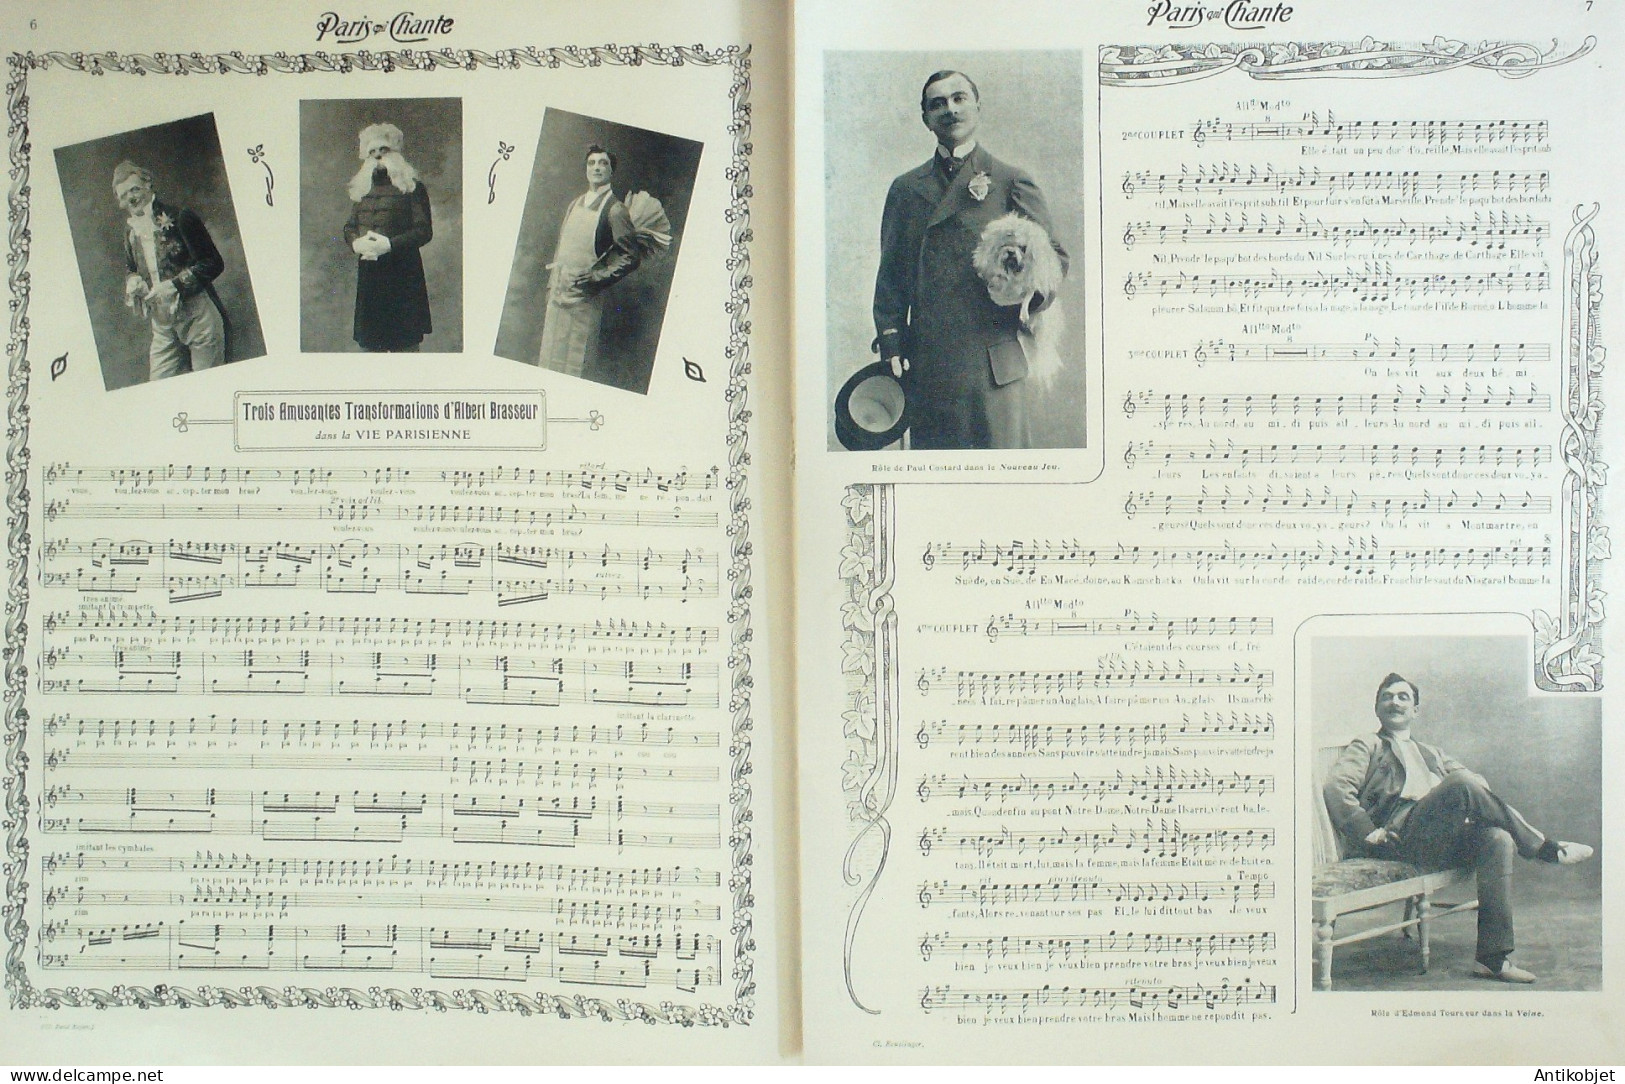 6
Paris qui Chante
Trois Amusantes Transformations d'Albert Brasseur
dans la VIE PARISIENNE
-vous, vou_lez-vous ac_cep_ter mon bras? vou_lez-vous voulez-vous voulez-vous ac_cep_ter mon bras? La fem_me ne ré_pon_dait
2e voix ad lib.
voulez-vous voulez-vous voulez-vous ac_cep_ter mon bras?
suivez
très animé
imitant la trompette
pas Pa ra pa pa pa pa pa
très animé
imitant la clarinette
imitant les cymbales
zim
zim
Paris qui Chante
7
Rôle de Paul Costard dans le Nouveau Jeu.
All tto Mod to
8
2me COUPLET
Elle é_tait un peu dur' d'o_reille, Mais elle avait l'esprit sub
_til, Mais elle avait l'esprit sub_til Et pour fuir s'en fût à Marseille, Prendr' le paqu'bot des bords du
Nil, Prendr' le paqu'bot des bords du Nil Sur les ru_i_nes de Car_thage, de Carthage Elle vit
rit
pleurer Salamm_bô, Et fit qua_tre fois à la nage, à la nage Le tour de l'îl' de Bornéo L'homme la
All tto Mod to
8
3me COUPLET
On les vit aux deux hé_mi_
_sphè_res, Au nord, au mi_di puis ail_leurs Au nord au mi_di puis ail_
_leurs Les enfants di_saient à leurs pè_res Quels sont donc ces deux vo_ya_
_geurs? Quels sont donc ces deux vo_ya_geurs? On la vit à Montmartre, en
rit
Suède, en Suè_de En Macé_doine, au Kamschatka On la vit sur la corde raide, corde raide, Franchir le saut du Niagara L'homme la
All tto Mod to
8
4me COUPLET
C'étaient des courses ef_fré
ad lib.
_nées À fai_re pâmer un Anglais, À faire pâmer un An_glais Ils marchè
rent bien des années Sans pouvoir s'atteindre jamais Sans pouvoir s'atteindre ja
_mais, Quand enfin au pont Notre Dame, Notre Dame Ils arri_vèrent ha_le_
tans, Il était mort, lui, mais la femme, mais la femme Était mère de huit en_
rit più ritenuto a Tempo
_fants, Alors re_venant sur ses pas El_le lui dit tout bas Je veux
bien je veux bien je veux bien prendre votre bras je veux bien je veux
ritenuto
bien je veux bien prendre votre bras Mais l'homme ne répondit pas.
Rôle d'Edmond Tourseur dans la Veine.
Antikobjet